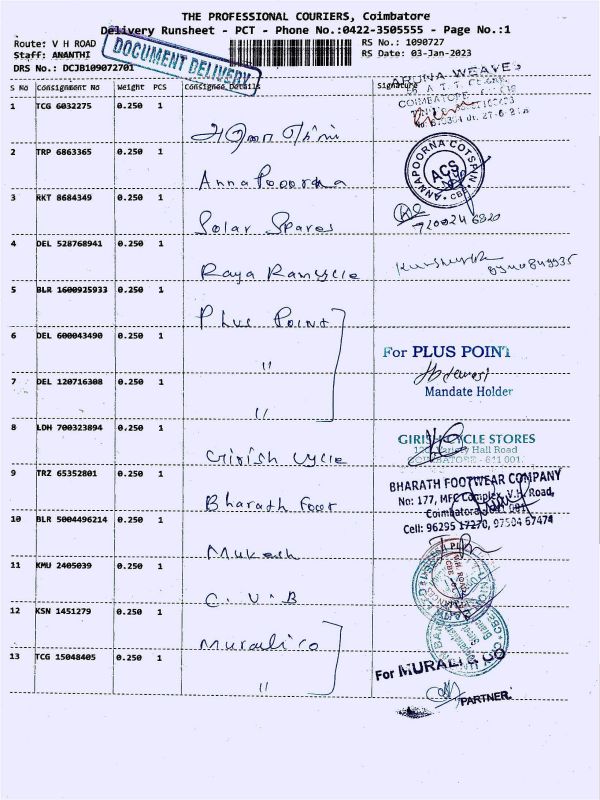 THE PROFESSIONAL COURIERS, Coimbatore
Delivery Runsheet - PCT - Phone No.:0422-3505555 - Page No.:1
Route: V H ROAD
RS No.: 1090727
Staff: ANANTHI
RS Date: 03-Jan-2023
DRS No.: DCJB109072701
DOCUMENT DELIVERY
S No Consignment No Weight PCS Consignee Details Signature
1 TCG 6032275 0.250 1
ARUNA WEAVES
COIMBATORE
2 TRP 6863365 0.250 1 Annapoorna
ANNAPOORNA COTSPIN
ACS
CBE
3 RKT 8684349 0.250 1 Solar Spares
4 DEL 528768941 0.250 1 Raya Ramcycle
5 BLR 1600925933 0.250 1 Plus Point
6 DEL 600043490 0.250 1 "
For PLUS POINT
Mandate Holder
7 DEL 120716308 0.250 1 "
8 LDH 700323894 0.250 1 Girish cycle
GIRISH CYCLE STORES
Hall Road
COIMBATORE - 641 001.
9 TRZ 65352801 0.250 1 Bharath Foot
BHARATH FOOTWEAR COMPANY
No: 177, MFC Complex, V.H. Road,
Coimbatore
Cell: 96295 17270, 97504 67474
10 BLR 5004496214 0.250 1 Mukesh
11 KMU 2405039 0.250 1 C.U.B
12 KSN 1451279 0.250 1 Murali co
13 TCG 15048405 0.250 1 "
For MURALI & CO
PARTNER.